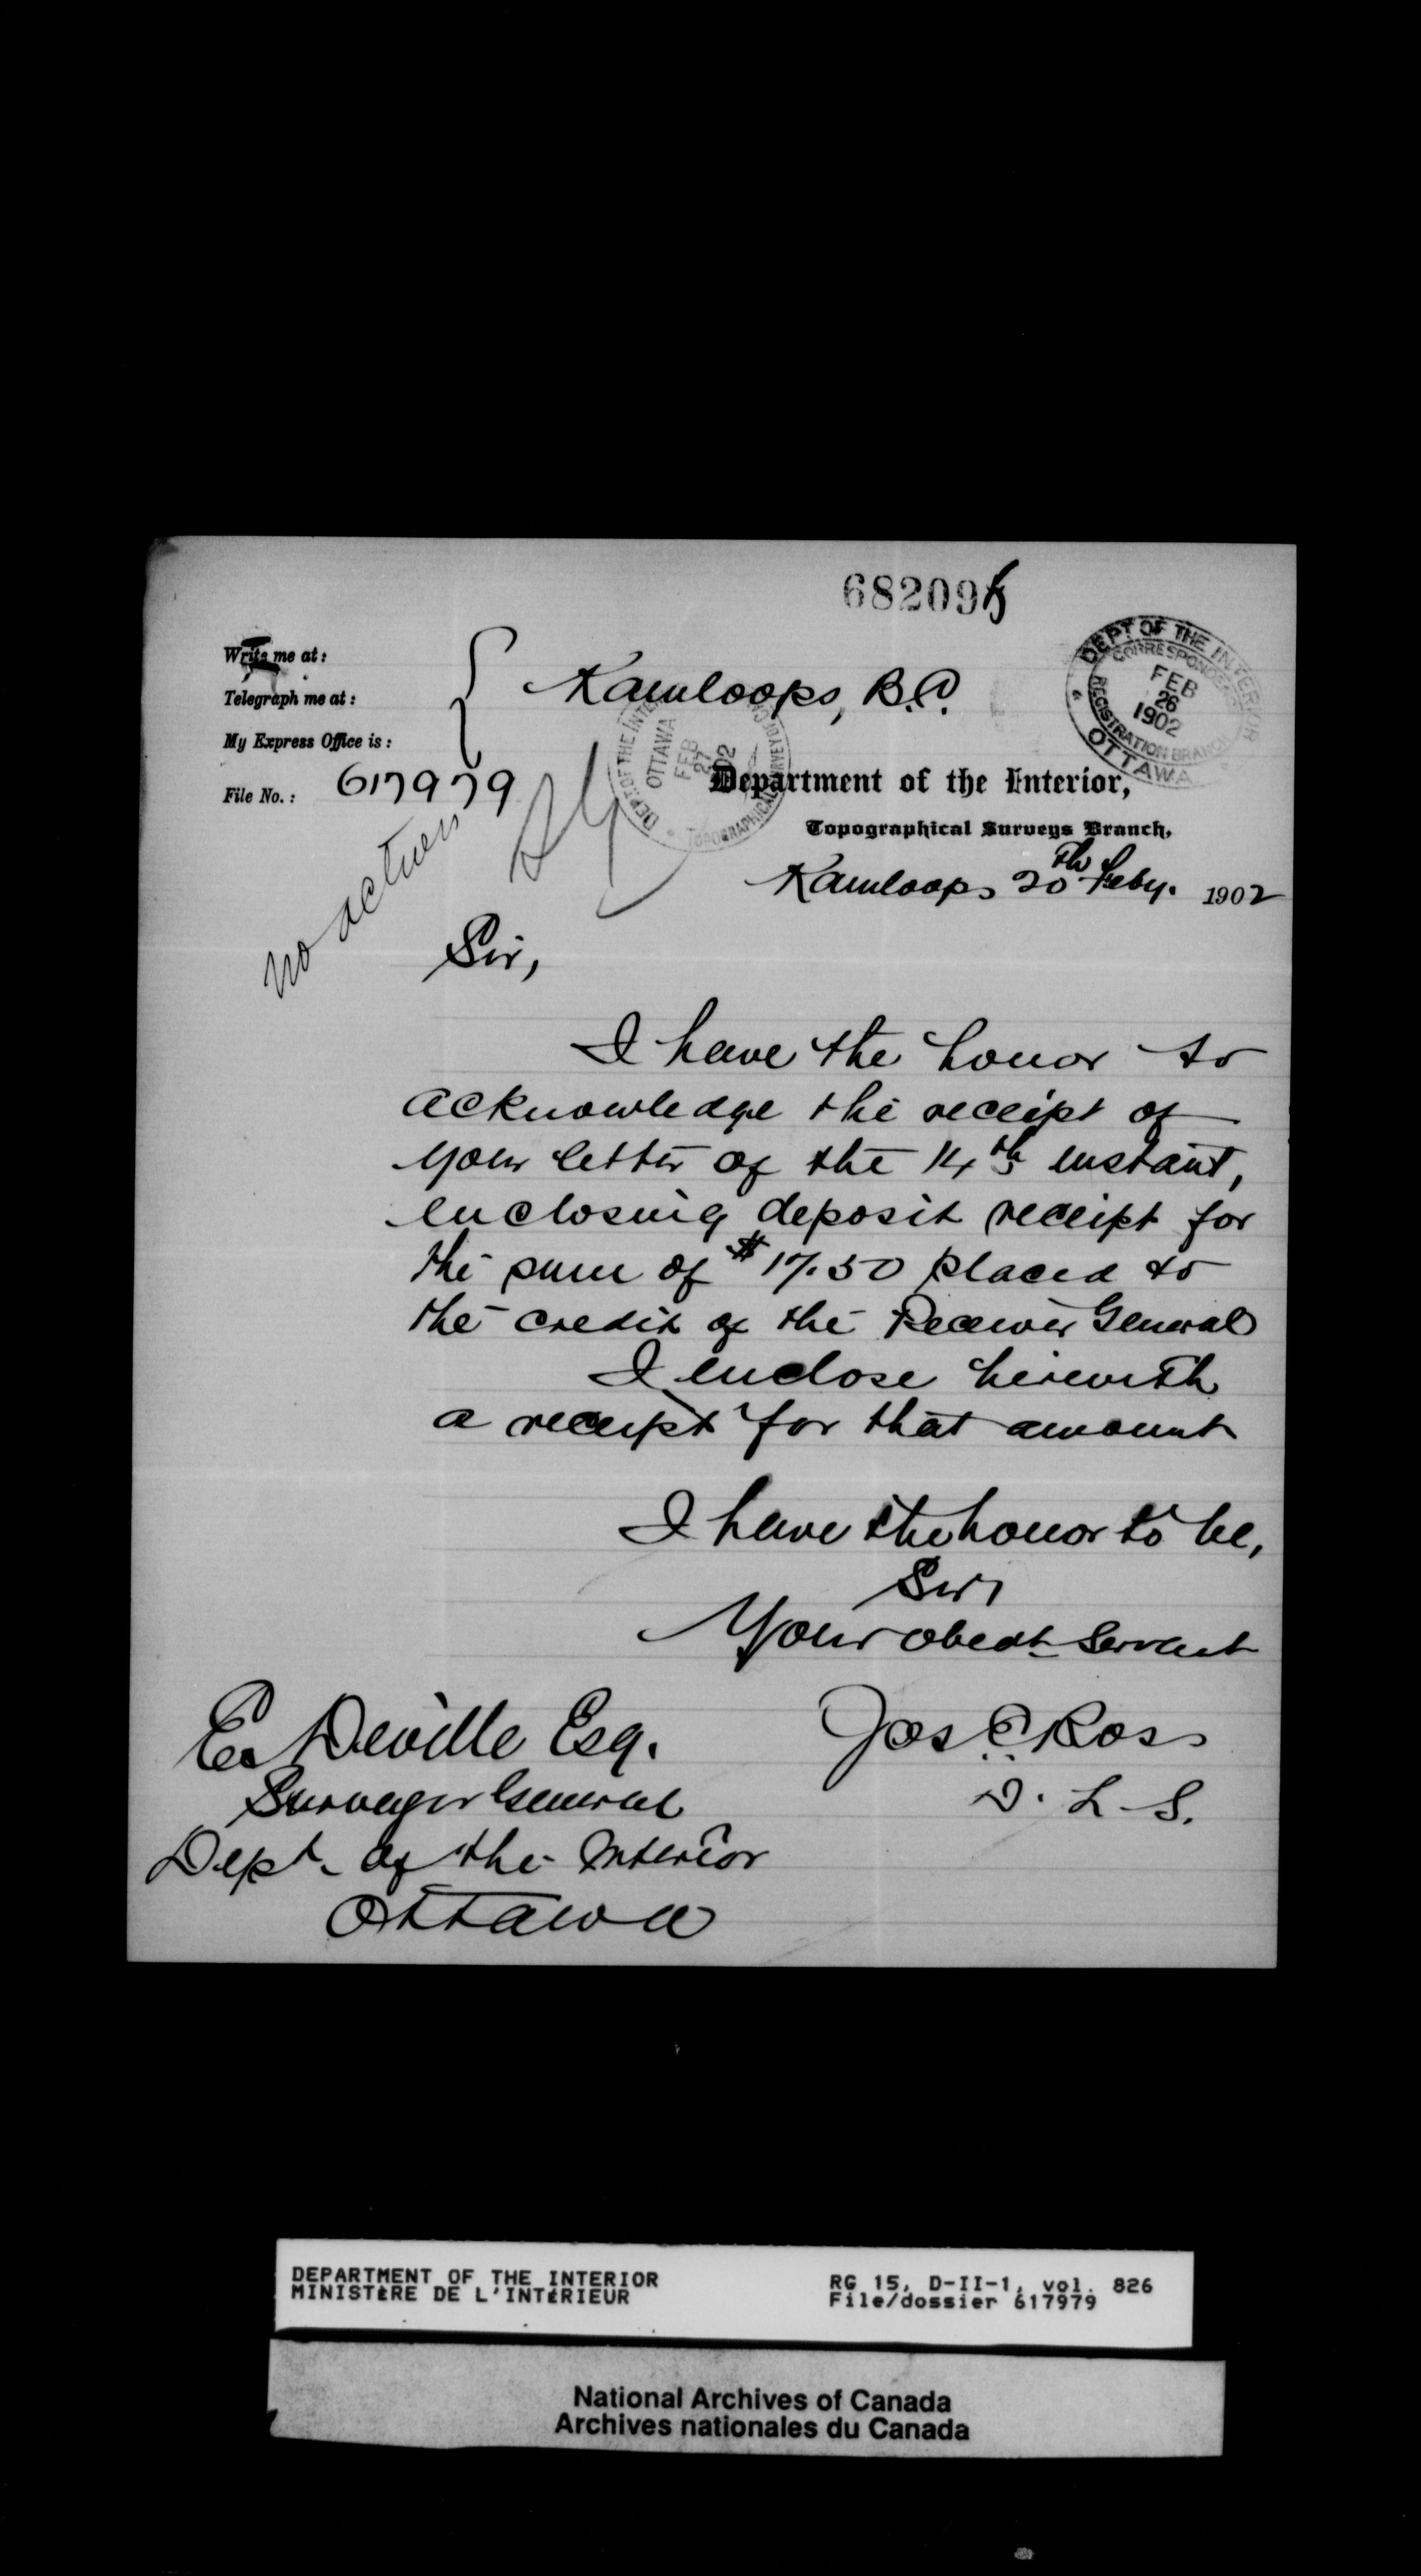 682095
Write me at:
Telegraph me at:
My Express Office is:
Kamloops, B.C.
File No.: 617979
DEPT OF THE INTERIOR
CORRESPONDENCE
FEB
26
1902
REGISTRATION BRANCH
OTTAWA
DEPT. OF THE INTERIOR
OTTAWA
FEB
27
1902
TOPOGRAPHICAL SURVEYS
Department of the Interior,
Topographical Surveys Branch,
Kamloops 20th Feby. 1902
no action
Sir,
I have the honor to
acknowledge the receipt of
your letter of the 14th instant,
enclosing deposit receipt for
the sum of $17.50 placed to
the credit of the Receiver General
I enclose herewith
a receipt for that amount
I have the honor to be,
Sir,
Your obedt servant
Jas C. Ross
D. L. S.
E. Deville Esq.
Surveyor General
Dept. of the Interior
Ottawa
DEPARTMENT OF THE INTERIOR
MINISTÈRE DE L'INTÉRIEUR
RG 15, D-II-1, vol. 826
File/dossier 617979
National Archives of Canada
Archives nationales du Canada